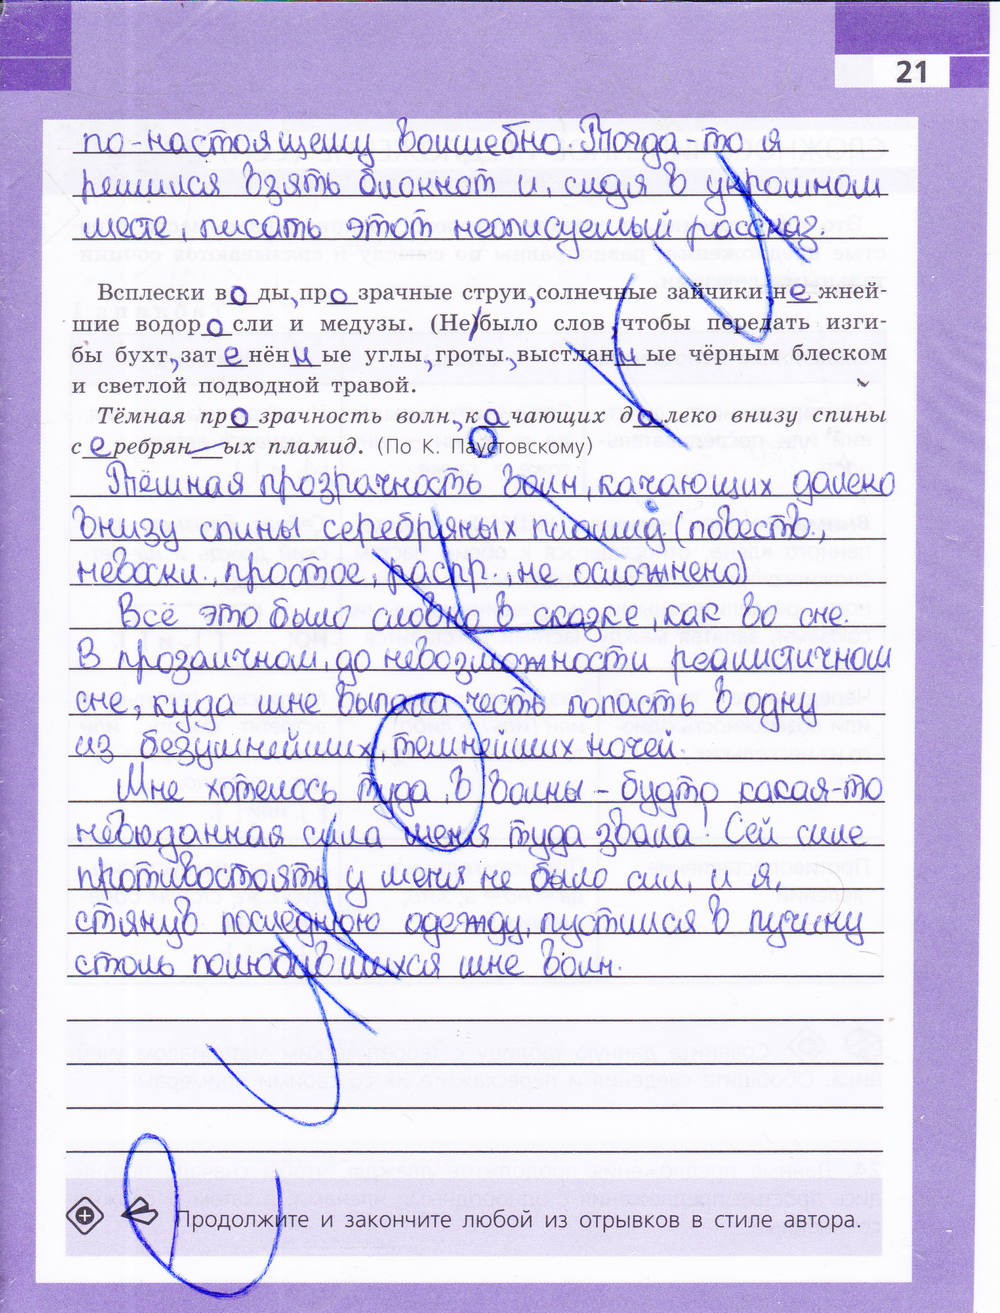 21
по-настоящему волшебно. Тогда-то я
решился взять блокнот и, сидя в укромном
месте, писать этот неописуемый рассказ.
Всплески воды, прозрачные струи, солнечные зайчики, нежней-
шие водоросли и медузы. (Не)было слов, чтобы передать изги-
бы бухт, затенённые углы, гроты, выстланные чёрным блеском
и светлой подводной травой.
Тёмная прозрачность волн, качающих далеко внизу спины
серебряных пламид. (По К. Паустовскому)
Тёмная прозрачность волн, качающих далеко
внизу спины серебряных пламид. (повеств.,
невоскл., простое, распр., не осложнено)
Всё это было словно в сказке, как во сне.
В прозаичном, до невозможности реалистичном
сне, куда мне выпала честь попасть в одну
из безумнейших, темнейших ночей.
Мне хотелось туда, в волны – будто какая-то
невиданная сила меня туда звала! Сей силе
противостоять у меня не было сил, и я,
стянув последнюю одежду, пустился в пучину
столь полюбившихся мне волн.
Продолжите и закончите любой из отрывков в стиле автора.